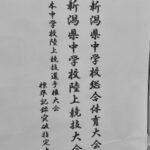 新潟県中学校総合体育大会
新潟県中学校陸上競技大会
本中学校陸上競技選手権大会
標準記録突破指定大